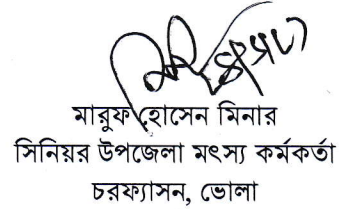 মারুফ হোসেন মিনার
সিনিয়র উপজেলা মৎস্য কর্মকর্তা
চরফ্যাসন, ভোলা